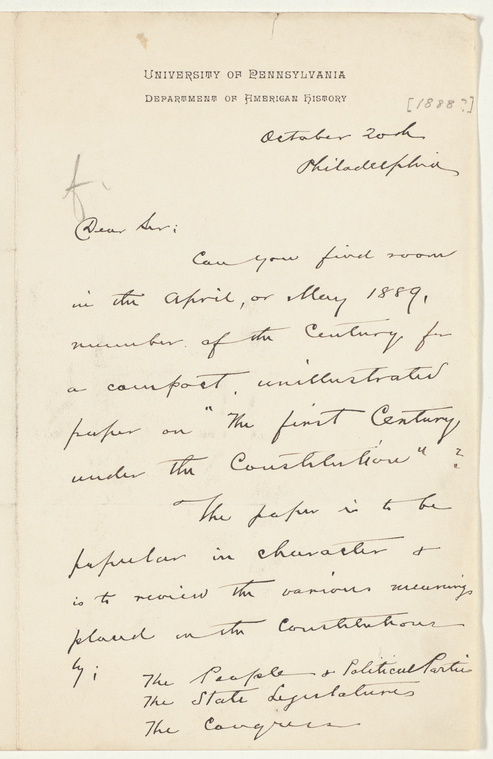 University of Pennsylvania
Department of American History
[1888?]
October 20th
Philadelphia
Dear Sir:
Can you find room
in the April, or May 1889,
number of the Century for
a compact, unillustrated
paper on "The first Century,
under the Constitution"?
The paper is to be
popular in character &
is to review the various meanings
placed on the Constitution
by:
The People & Political Parties
The State Legislatures
The Congress